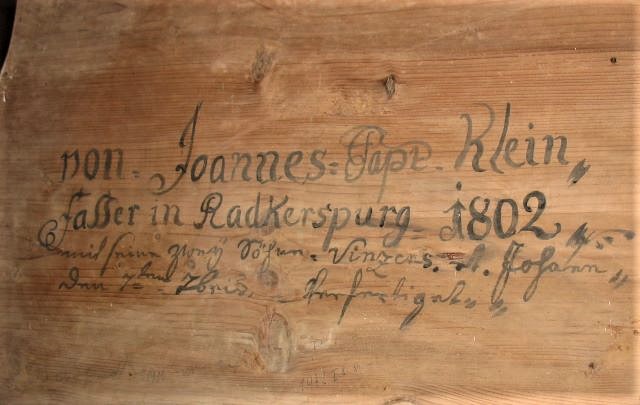 von Joannes Bapt. Klein
fasser in Radkerspurg 1802
mit seine zweÿ Söhne Vinzens. u. Johann
den 7ten 7bris. Verfertiget